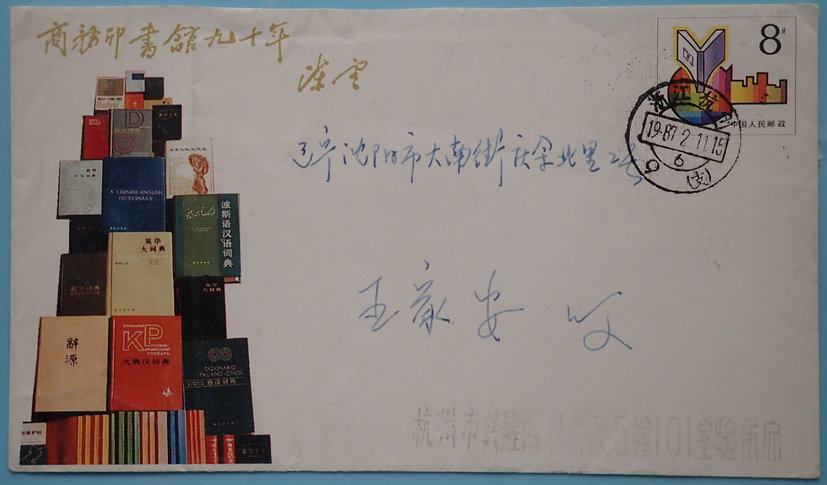 商務印書館九十年
陈云
8分
中国人民邮政
浙江杭
1987.2.11.15
6
(支)
辽宁沈阳市大南街庆余北里2号
王家安 收
杭州市兴隆西村邮政5幢101室
A CHINESE ENGLISH
DICTIONARY
波斯语汉语词典
英华
大词典
新华词典
英华
大词典
辞
源
КР
大俄汉词典
DIZIONARIO
ITALIANO-CINESE
意汉词典